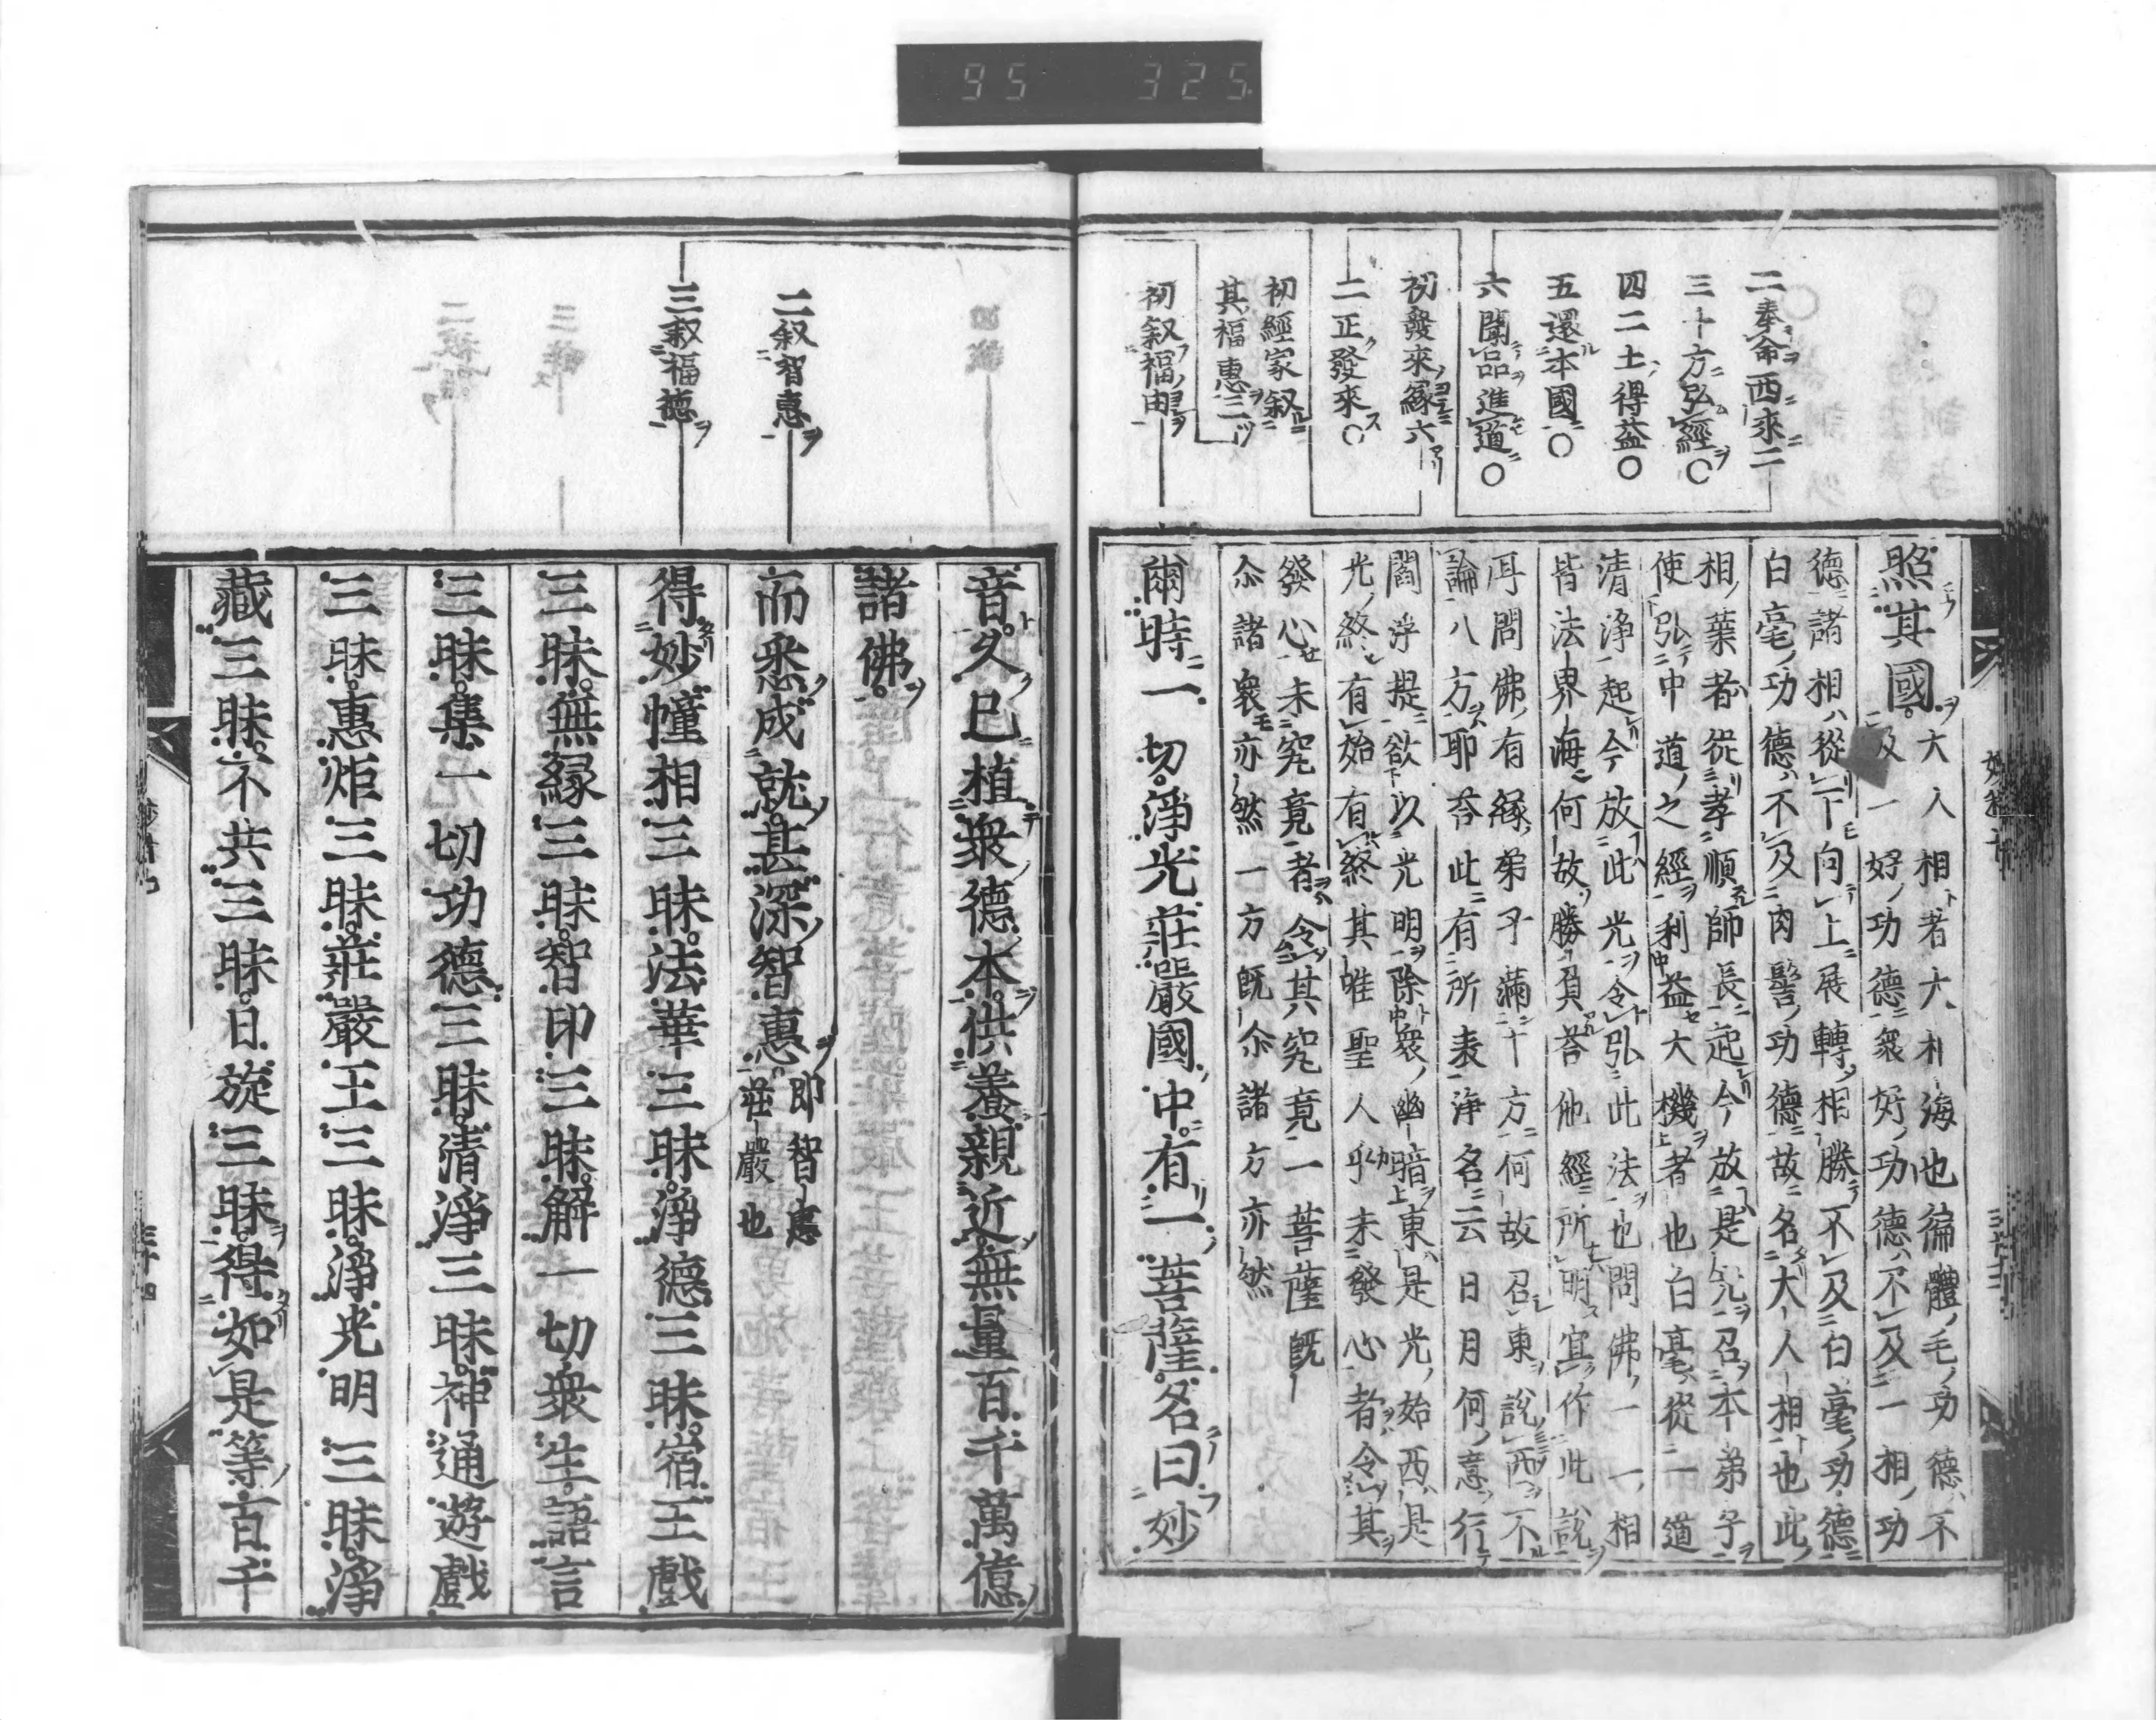 95 325
二奉命西來二
三十方弘經○
四二土得益○
五還本國○
六聞品進道○
初發來縁六
二正發來○
初經家叙
其福惠三
初叙福由
照其國。大人相者大相海也徧體毛功德不
及一好功德衆好功德不及一相功
德諸相從下向上展轉相勝不及白毫功德
白毫功德不及肉髻功德故名大人相也此
相葉者從孝順師長起今放是光召本弟子
使弘中道之經利益大機者也白毫從一道
清淨起今放此光令弘此法也問佛一一相
皆法界海何故勝負荅他經所明冝作此説
耳問佛有縁弟子滿十方何故召東説西不
論八方耶荅此有所表淨名云日月何意行
閻浮提欲以光明除衆幽暗東是光始西是
光終有始有終其唯聖人乎未發心者令其
發心未究竟者令其究竟一菩薩既
尒諸衆亦然一方既尒諸方亦然
爾時一切淨光莊嚴國中有一菩薩名曰妙
二叙智惠
三叙福德
音久已植衆德本供養親近無量百千萬億
諸佛。
而悉成就甚深智惠。即智惠
莊嚴也
得妙幢相三昧。法華三昧。淨德三昧。宿王戲
三昧。無縁三昧。智印三昧。解一切衆生語言
三昧。集一切功德三昧。清淨三昧。神通遊戲
三昧。惠炬三昧。莊嚴王三昧。淨光明三昧。淨
藏三昧。不共三昧。日旋三昧。得如是等百千